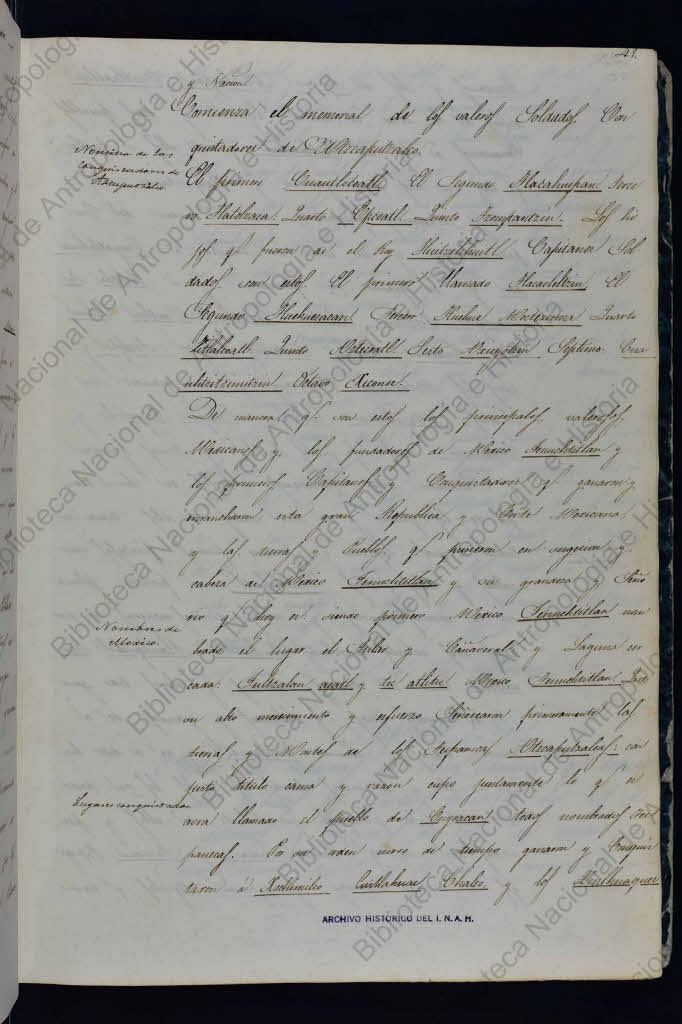 41.
y Nacion.
Comienza el memorial de los valeros Soldados. Con
quistadores de Atzcaputzalco.
Nombres de los
conquistadores de
Atzcapuzalco
El primero Cuautlecoatl El Segundo Tlacahuepan Terce
ro Tlatolzaca. Quarto Epcoatl Quinto Tzompantzin. Los hi
jos q.e fueron de el Rey Huitzilihuitl Capitanes Sol
dados son estos. El primero llamado Tlacaeleltzin. El
Segundo Huehuezacan Tercero Huehue Moctezuma Quarto
Citlalcoatl Quinto Aztecoatl Sesto Axicyotzin Septimo Cua
uhtzitzimitzin Octavo Xiconoc.
De manera q.e son estos los principales valerosos
Mexicanos y los fundadores de Mexico Tenuchtitlan y
los primeros Capitanes y Conquistadores q.e ganaron y
ensancharon esta gran Republica y Corte Mexicana
y las tierras y Pueblos q.e pusieron en sugecion y
cabeza de Mexico Tenuchtitlan y su grandeza y Seño
rio q.e hoy es siendo primero Mexico Tenuchtitlan nom
Nombres de
Mexico.
brado el lugar el Tular y Cañaveral y Laguna cer
cada. Tultzalan acatl y tic atlitic Mexico Tenuchtitlan
su alto merecimiento y esfuerzo Señorearon primeramente las
tierras y Montes de los Tecpanecas Atzcaputzalcos: con
justo titulo causa y razon cupo juntamente lo q.e es
Lugares conquistados
aora llamado el pueblo de Cuyuacan todos nombrados Tec
panecas. Por su orden curso de tiempo ganaron y Conquis
taron á Xochimilco Cuitlahuac Chalco, y los Aculhuaques
ARCHIVO HISTORICO DEL I. N. A. H.
Biblioteca Nacional de Antropología e Historia